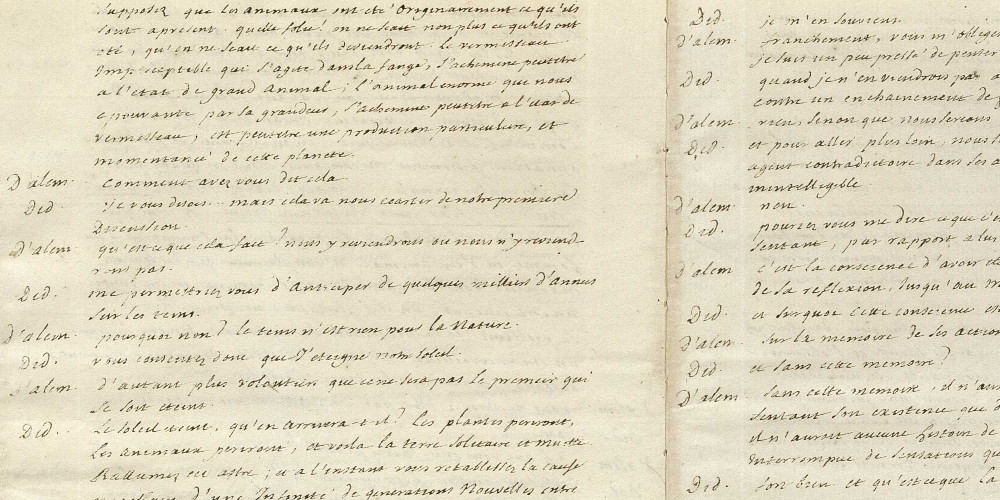 Supposez que les animaux ont eté Originairement ce qu'ils
sont apresent. quelle folie! on ne scait non plus ce qu'ils ont
eté, qu'on ne scau ce qu'ils deviendront. le vermisseau
Imperceptible qui s'agite dans la fange, s'achemine peutetre
a l'etat de grand Animal; l'animal enorme que nous
epouvante par sa grandeur, s'achemine peutetre a l'etat de
vermisseau, est peutetre une production particuliere, et
momentané de cette planete.
D'alem. Comment avez vous dit cela
Did. Je vous disois... mais cela va nous ecarter de notre premiere
Discussion.
D'alem qu'est ce que cela fait? nous y reviendrons ou nous n'y reviend
rons pas.
Did. me permettriez vous d'Anticiper de quelques milliers d'Années
sur les tems.
D'alem. pourquoi non? le tems n'est rien pour la Nature.
Did. vous consentez donc que J'eteigne notre soleil.
D'alem. d'autant plus volontiers que ce ne sera pas le premier qui
se soit eteint.
Did. Le soleil eteint, qu'en arrivera t-il? Les plantes periront,
Les animaux periront, et voila la terre solitaire et muette
Rallumez cet astre; et a l'instant vous retablissez la cause
d'une Infinité de generations Nouvelles entre
Did. je m'en souviens.
D'alem. franchement, vous m'obliger
je suis un peu pressé de penser
Did. quand je n'en viendrois pas a
contre un enchainement de
D'alem. rien, sinon que nous serions
Did. et pour aller plus loin, nous
agent contradictoire dans ses a
inintelligible.
D'alem. non.
Did. pourriez vous me dire ce que c'e
sentant, par rapport a lui
D'alem c'est la conscience d'avoir eté
de sa reflexion, Jusqu'au m
Did. et sur quoi cette conscience es
D'alem. sur la memoire de ses action
Did. et sans cette memoire?
D'alem sans cette memoire, il n'au
sentant son existence que
il n'auroit aucune histoire de
Interrompue de sensations qu
Did. fort bien et qu'est ce que la